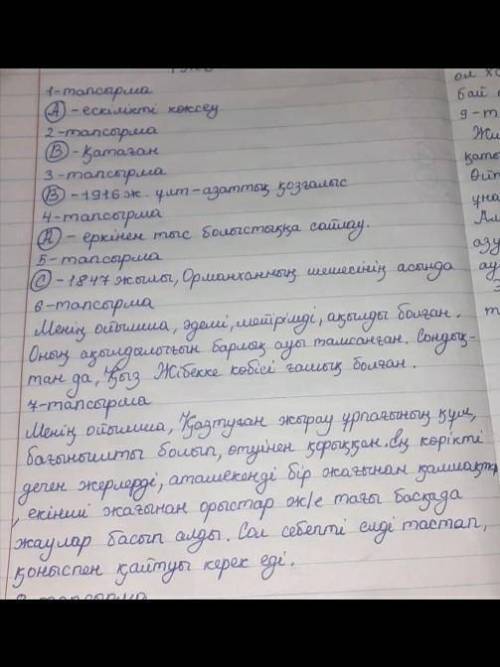 1-тапсырма
А - ескілікті көксеу
2-тапсырма
В - Қатаған
3-тапсырма
В - 1916 ж. ұлт-азаттық қозғалыс
4-тапсырма
А - еркінен тыс болыстыққа сайлау.
5-тапсырма
С - 1847 жылы, Орманханның шешесінің асында
6-тапсырма
Менің ойымша, әдемі, мейрімді, ақылды болған.
Оның ақылдылығын барлық ауыл тамсанған. Сондық-
тан да, Қыз Жібекке көбісі ғашық болған.
7-тапсырма
Менің ойымша, Қазтуған жырау ұрпағының құл,
бағынышты болып, өтуінен қорыққан. Ең көрікті
деген жерлерді, атамекенді бір жағынан қалмақтар
, екінші жағынан орыстар ж/е тағы басқада
жаулар басып алды. Сол себепті елді тастап,
қоныспен қайтуы керек еді.
тапсырма
ол
бай
9-т